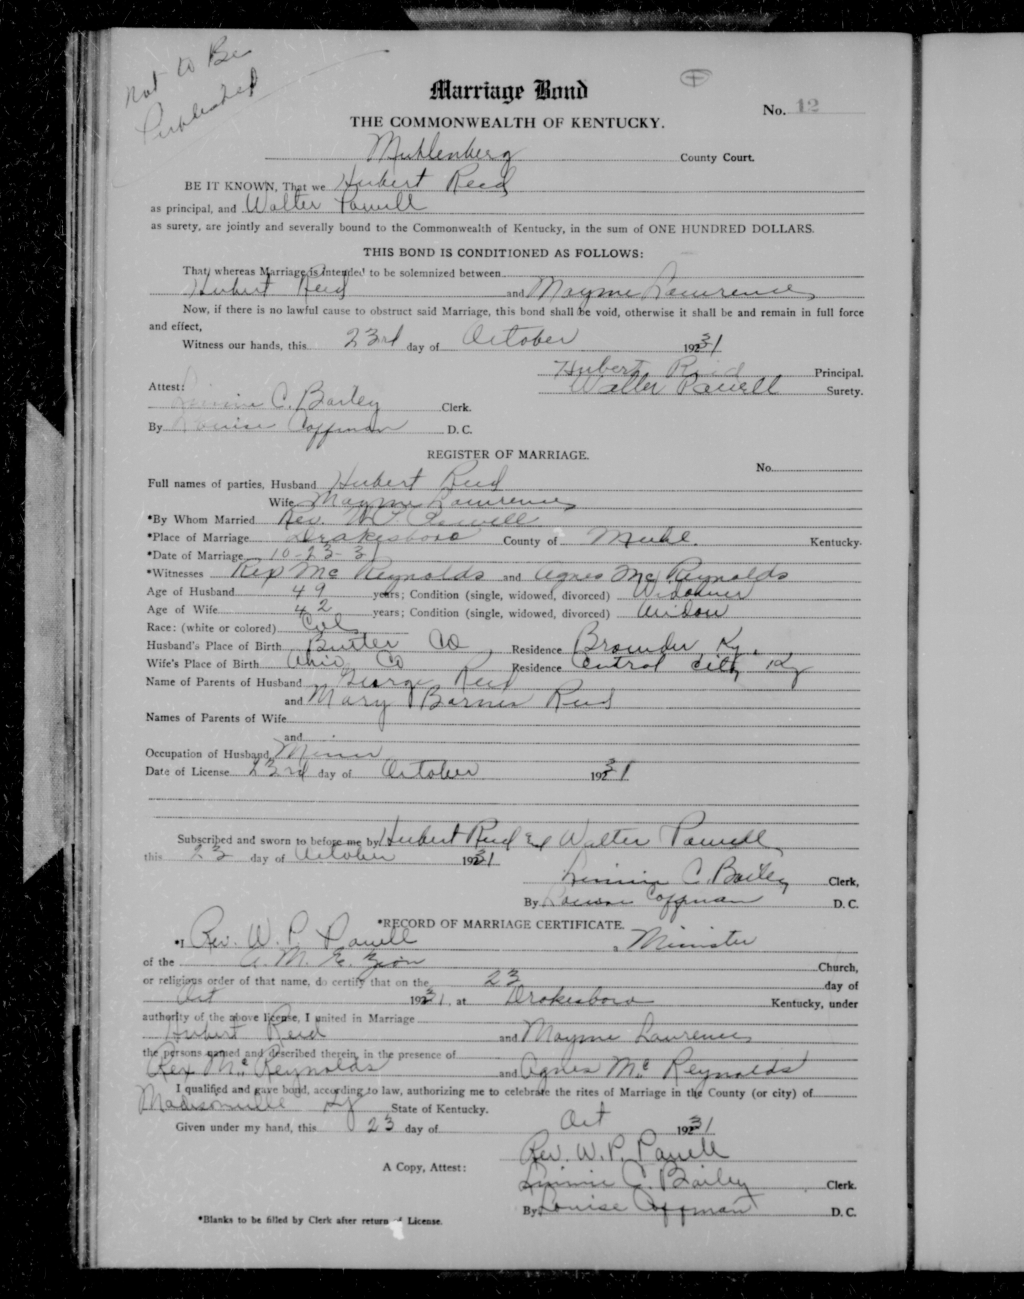 Not to Be
Published
Marriage Bond
No. 12
THE COMMONWEALTH OF KENTUCKY.
Muhlenberg County Court.
BE IT KNOWN, That we Hubert Reid
as principal, and Walter Powell
as surety, are jointly and severally bound to the Commonwealth of Kentucky, in the sum of ONE HUNDRED DOLLARS.
THIS BOND IS CONDITIONED AS FOLLOWS:
That, whereas Marriage is intended to be solemnized between
Hubert Reid and Mayme Lawrence
Now, if there is no lawful cause to obstruct said Marriage, this bond shall be void, otherwise it shall be and remain in full force
and effect,
Witness our hands, this 23rd day of October 1931
Hubert Reid Principal.
Walter Powell Surety.
Attest:
C. Bailey Clerk.
By Louise Coffman D. C.
REGISTER OF MARRIAGE.
No.
Full names of parties, Husband Hubert Reid
Wife Mayme Lawrence
*By Whom Married Rev. W P Powell
*Place of Marriage Drakesboro County of Muhl. Kentucky.
*Date of Marriage 10-23-31
*Witnesses Rex McReynolds and Agnes McReynolds
Age of Husband 49 years; Condition (single, widowed, divorced) Widower
Age of Wife 42 years; Condition (single, widowed, divorced) Widow
Race: (white or colored) Col
Husband's Place of Birth Butler Co Residence Browder Ky.
Wife's Place of Birth Ohio Co Residence Central City Ky
Name of Parents of Husband George Reid
and Mary Barnes Reid
Names of Parents of Wife
and
Occupation of Husband Miner
Date of License 23rd day of October 1931
Subscribed and sworn to before me by Hubert Reid and Walter Powell
this 23 day of October 1931
C. Bailey Clerk,
By Louise Coffman D. C.
*RECORD OF MARRIAGE CERTIFICATE.
*I Rev. W. P. Powell a Minister
of the A. M. E. Zion Church,
or religious order of that name, do certify that on the 23 day of
Oct 1931, at Drakesboro Kentucky, under
authority of the above license, I united in Marriage
Hubert Reid and Mayme Lawrence
the persons named and described therein, in the presence of
Rex McReynolds and Agnes McReynolds
I qualified and gave bond, according to law, authorizing me to celebrate the rites of Marriage in the County (or city) of
Madisonville Ky State of Kentucky.
Given under my hand, this 23 day of Oct 1931
Rev. W. P. Powell
A Copy, Attest: C. Bailey Clerk.
By Louise Coffman D. C.
*Blanks to be filled by Clerk after return of License.